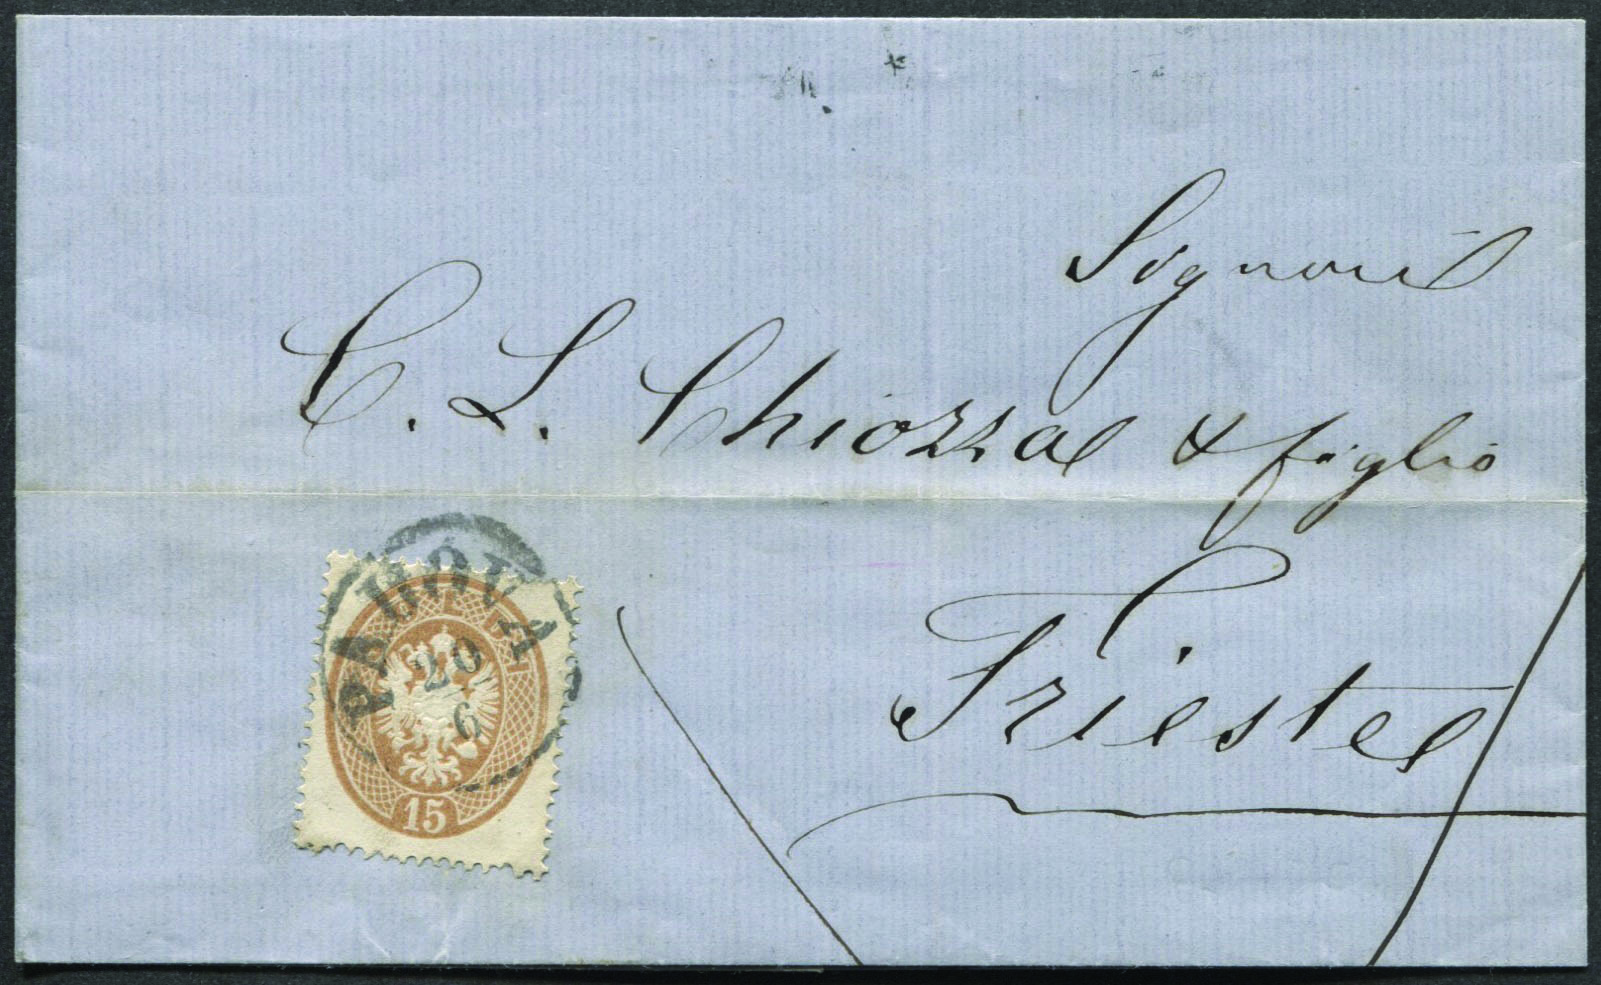 Signori
C. L. Chiozza & figlio
Trieste
PADOVA
20
6
15